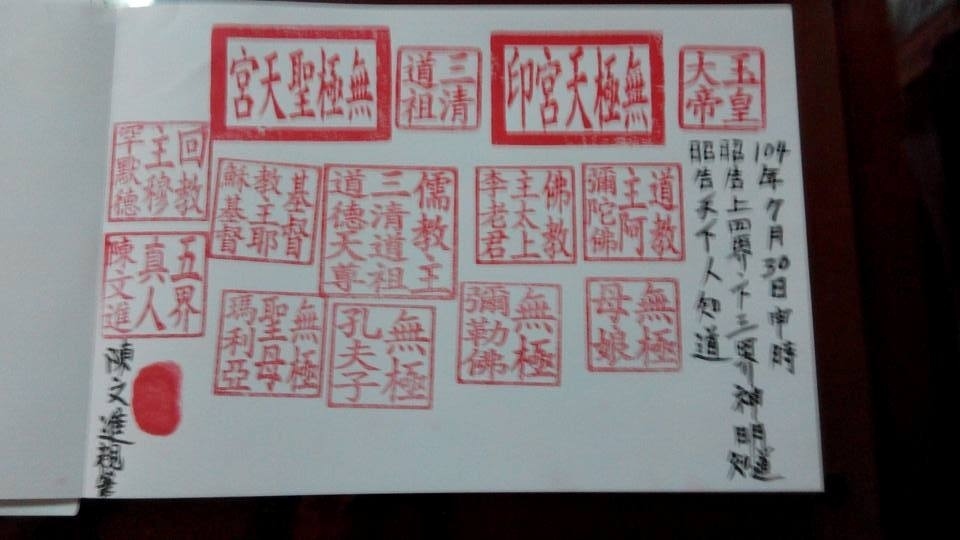 玉皇
大帝
無極天宮印
三清
道祖
無極聖天宮
104年7月30日申時
昭告上四界下三界神明知道
昭告天下人知道
道教
主阿
彌陀佛
佛教
主太上
李老君
儒教主
三清道祖
道德天尊
基督
教主耶
穌基督
回教
主穆
罕默德
無極
母娘
無極
彌勒佛
無極
孔夫子
無極
聖母
瑪利亞
五界
真人
陳文進
陳文進親筆